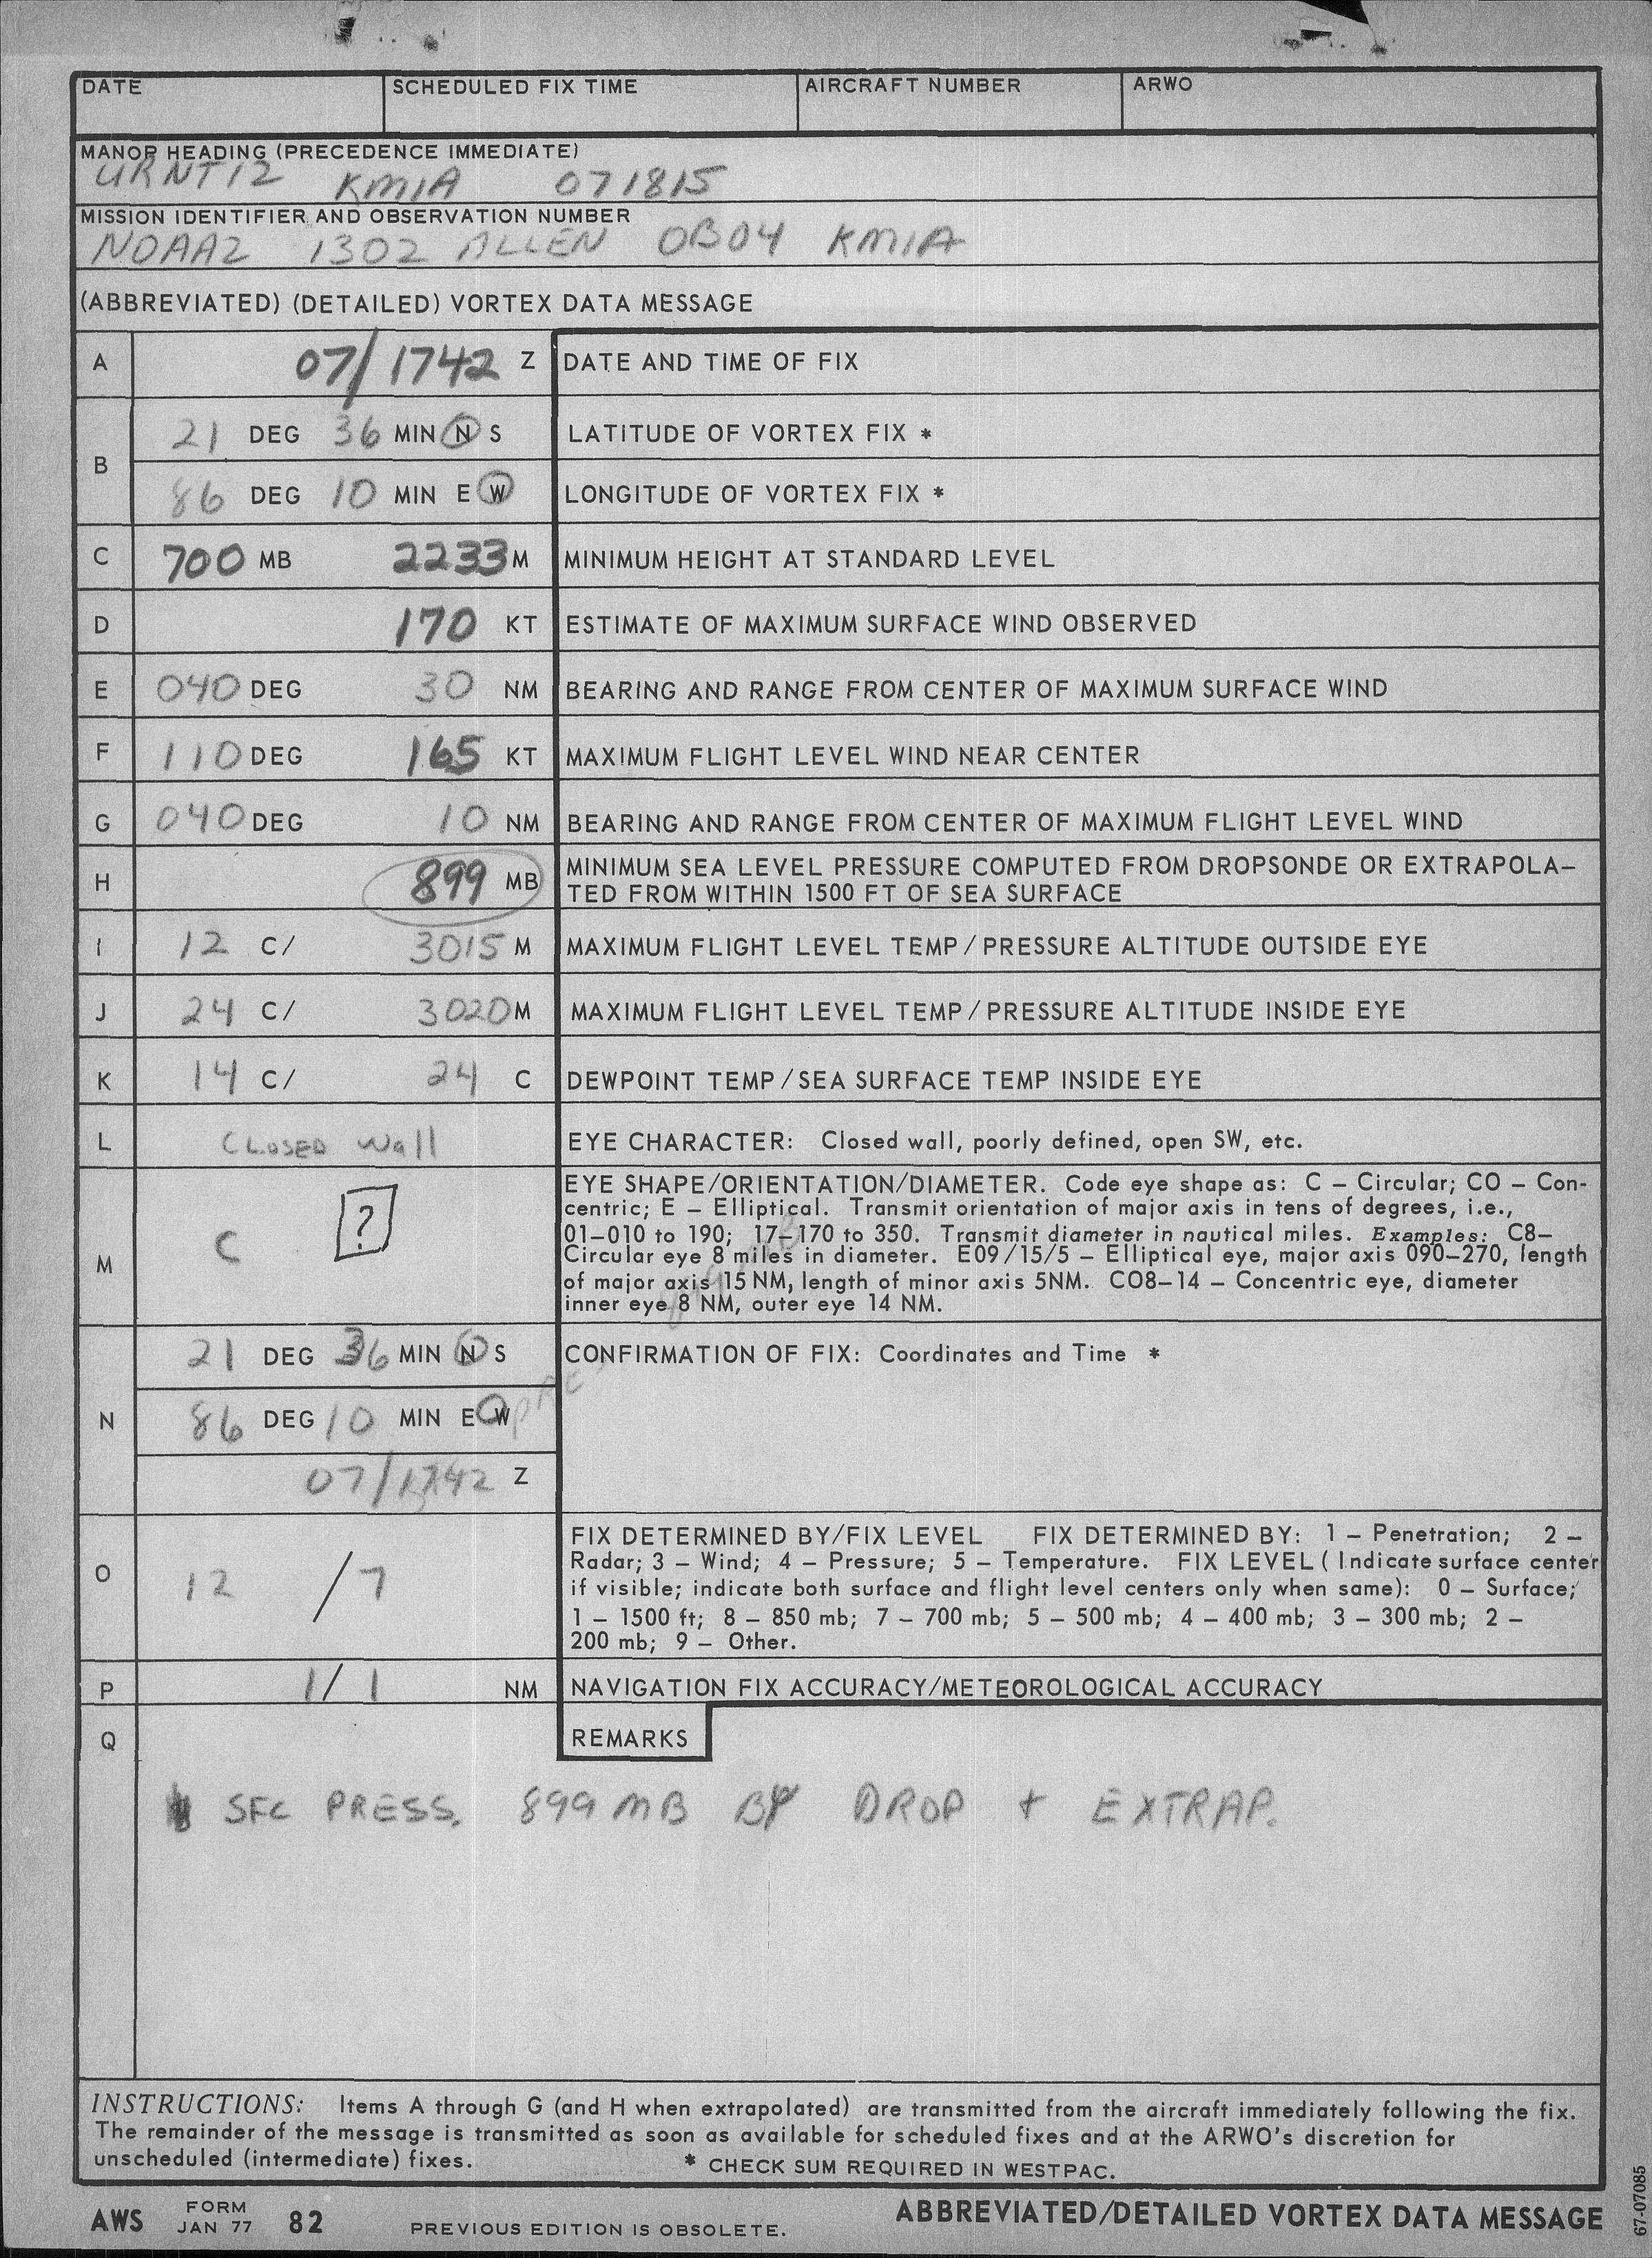 DATE SCHEDULED FIX TIME AIRCRAFT NUMBER ARWO
MANOP HEADING (PRECEDENCE IMMEDIATE)
URNT12 KMIA 071815
MISSION IDENTIFIER AND OBSERVATION NUMBER
NOAA2 1302 ALLEN OB04 KMIA
(ABBREVIATED) (DETAILED) VORTEX DATA MESSAGE
A 07/1742 Z DATE AND TIME OF FIX
B 21 DEG 36 MIN N S LATITUDE OF VORTEX FIX *
86 DEG 10 MIN E W LONGITUDE OF VORTEX FIX *
C 700 MB 2233 M MINIMUM HEIGHT AT STANDARD LEVEL
D 170 KT ESTIMATE OF MAXIMUM SURFACE WIND OBSERVED
E 040 DEG 30 NM BEARING AND RANGE FROM CENTER OF MAXIMUM SURFACE WIND
F 110 DEG 165 KT MAXIMUM FLIGHT LEVEL WIND NEAR CENTER
G 040 DEG 10 NM BEARING AND RANGE FROM CENTER OF MAXIMUM FLIGHT LEVEL WIND
H 899 MB MINIMUM SEA LEVEL PRESSURE COMPUTED FROM DROPSONDE OR EXTRAPOLA-
TED FROM WITHIN 1500 FT OF SEA SURFACE
I 12 C/ 3015 M MAXIMUM FLIGHT LEVEL TEMP/PRESSURE ALTITUDE OUTSIDE EYE
J 24 C/ 3020 M MAXIMUM FLIGHT LEVEL TEMP/PRESSURE ALTITUDE INSIDE EYE
K 14 C/ 24 C DEWPOINT TEMP/SEA SURFACE TEMP INSIDE EYE
L CLOSED Wall EYE CHARACTER: Closed wall, poorly defined, open SW, etc.
M C ? EYE SHAPE/ORIENTATION/DIAMETER. Code eye shape as: C – Circular; CO – Con-
centric; E – Elliptical. Transmit orientation of major axis in tens of degrees, i.e.,
01–010 to 190; 17–170 to 350. Transmit diameter in nautical miles. Examples: C8–
Circular eye 8 miles in diameter. E09/15/5 – Elliptical eye, major axis 090–270, length
of major axis 15 NM, length of minor axis 5NM. CO8–14 – Concentric eye, diameter
inner eye 8 NM, outer eye 14 NM.
N 21 DEG 36 MIN N S CONFIRMATION OF FIX: Coordinates and Time *
86 DEG 10 MIN E W
07/1742 Z
O 12 /7 FIX DETERMINED BY/FIX LEVEL FIX DETERMINED BY: 1 – Penetration; 2 –
Radar; 3 – Wind; 4 – Pressure; 5 – Temperature. FIX LEVEL (Indicate surface center
if visible; indicate both surface and flight level centers only when same): 0 – Surface;
1 – 1500 ft; 8 – 850 mb; 7 – 700 mb; 5 – 500 mb; 4 – 400 mb; 3 – 300 mb; 2 –
200 mb; 9 – Other.
P 1/1 NM NAVIGATION FIX ACCURACY/METEOROLOGICAL ACCURACY
Q REMARKS
SFC PRESS. 899 MB BY DROP + EXTRAP.
INSTRUCTIONS: Items A through G (and H when extrapolated) are transmitted from the aircraft immediately following the fix.
The remainder of the message is transmitted as soon as available for scheduled fixes and at the ARWO's discretion for
unscheduled (intermediate) fixes. * CHECK SUM REQUIRED IN WESTPAC.
AWS FORM JAN 77 82 PREVIOUS EDITION IS OBSOLETE. ABBREVIATED/DETAILED VORTEX DATA MESSAGE
67-07085